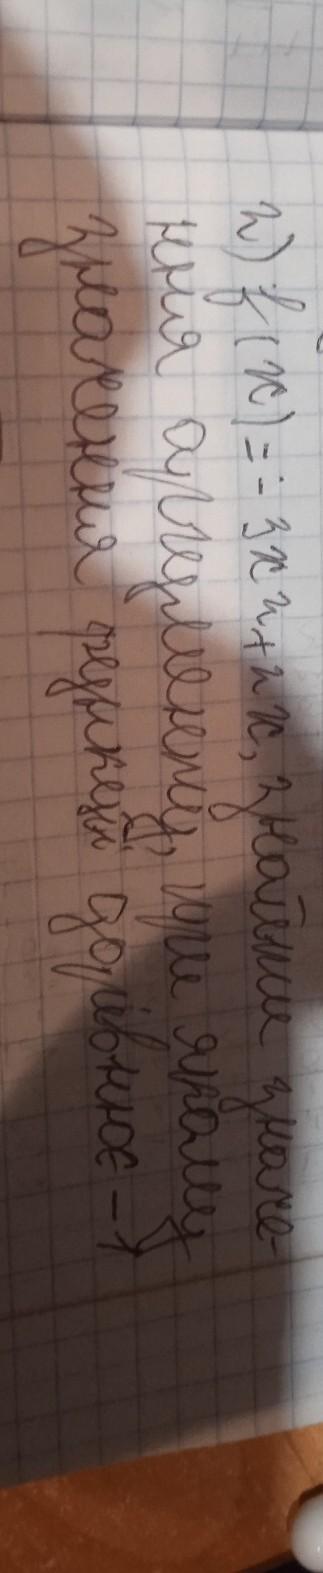 2) f(x) = -3x2+2x, знайти значе-
ння аргументу, при якому
значення функції дорівнює -1